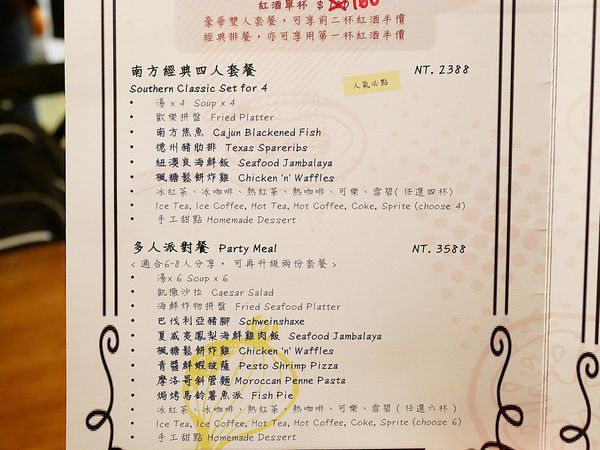 紅酒單杯 $ 160
豪華雙人套餐，可享前二杯紅酒半價
經典排餐，亦可享用第一杯紅酒半價
南方經典四人套餐 NT. 2388
人氣必點
Southern Classic Set for 4
• 湯 x 4 Soup x 4
• 歡樂拼盤 Fried Platter
• 南方焦魚 Cajun Blackened Fish
• 德州豬肋排 Texas Spareribs
• 紐澳良海鮮飯 Seafood Jambalaya
• 楓糖鬆餅炸雞 Chicken 'n' Waffles
• 冰紅茶、冰咖啡、熱紅茶、熱咖啡、可樂、雪碧 ( 任選四杯)
Ice Tea, Ice Coffee, Hot Tea, Hot Coffee, Coke, Sprite (choose 4)
• 手工甜點 Homemade Dessert
多人派對餐 Party Meal NT. 3588
< 適合6-8人分享，可再升級兩份套餐 >
• 湯x 6 Soup x 6
• 凱撒沙拉 Caesar Salad
• 海鮮炸物拼盤 Fried Seafood Platter
• 巴伐利亞豬腳 Schweinshaxe
• 夏威夷鳳梨海鮮雞肉飯 Seafood Jambalaya
• 楓糖鬆餅炸雞 Chicken 'n' Waffles
• 青醬鮮蝦披薩 Pesto Shrimp Pizza
• 摩洛哥斜管麵 Moroccan Penne Pasta
• 焗烤馬鈴薯魚派 Fish Pie
• 冰紅茶、冰咖啡、熱紅茶、熱咖啡、可樂、雪碧 ( 任選六杯 )
• Ice Tea, Ice Coffee, Hot Tea, Hot Coffee, Coke, Sprite (choose 6)
• 手工甜點 Homemade Dessert